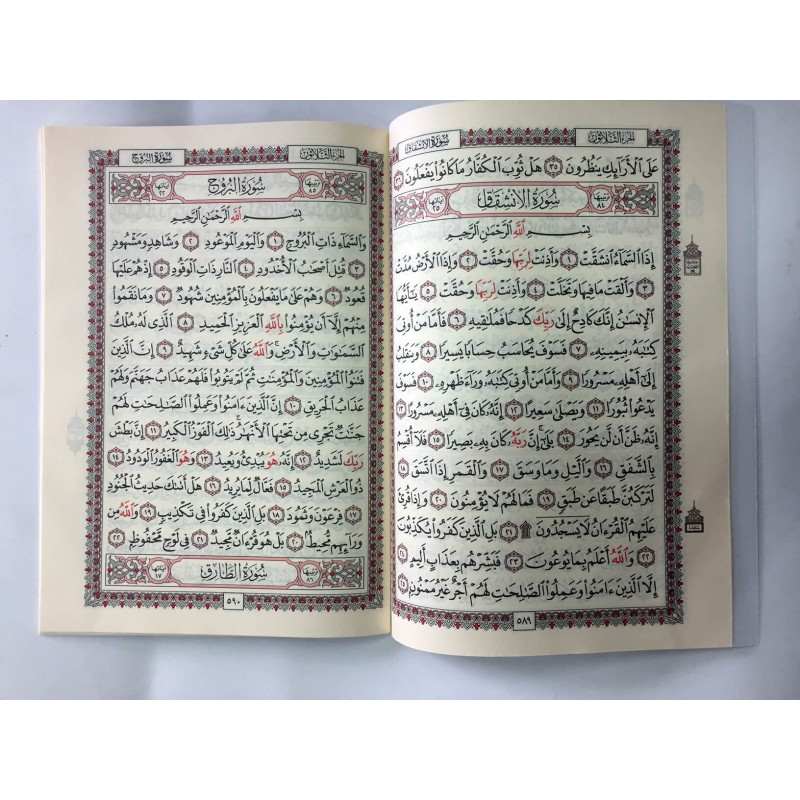 سورة الانشقاق
الجزء الثلاثون
عَلَى ٱلْأَرَآئِكِ يَنظُرُونَ ٣٥ هَلْ ثُوِّبَ ٱلْكُفَّارُ مَا كَانُوا۟ يَفْعَلُونَ ٣٦
ترتيبها ٨٤ سُورَةُ الانشِقَاقِ آياتها ٢٥
بِسْمِ ٱللَّهِ ٱلرَّحْمَٰنِ ٱلرَّحِيمِ
إِذَا ٱلسَّمَآءُ ٱنشَقَّتْ ١ وَأَذِنَتْ لِرَبِّهَا وَحُقَّتْ ٢ وَإِذَا ٱلْأَرْضُ مُدَّتْ
٣ وَأَلْقَتْ مَا فِيهَا وَتَخَلَّتْ ٤ وَأَذِنَتْ لِرَبِّهَا وَحُقَّتْ ٥ يَٰٓأَيُّهَا
ٱلْإِنسَٰنُ إِنَّكَ كَادِحٌ إِلَىٰ رَبِّكَ كَدْحًا فَمُلَٰقِيهِ ٦ فَأَمَّا مَنْ أُوتِىَ
كِتَٰبَهُۥ بِيَمِينِهِۦ ٧ فَسَوْفَ يُحَاسَبُ حِسَابًا يَسِيرًا ٨ وَيَنقَلِبُ
إِلَىٰٓ أَهْلِهِۦ مَسْرُورًا ٩ وَأَمَّا مَنْ أُوتِىَ كِتَٰبَهُۥ وَرَآءَ ظَهْرِهِۦ ١٠ فَسَوْفَ
يَدْعُوا۟ ثُبُورًا ١١ وَيَصْلَىٰ سَعِيرًا ١٢ إِنَّهُۥ كَانَ فِىٓ أَهْلِهِۦ مَسْرُورًا ١٣
إِنَّهُۥ ظَنَّ أَن لَّن يَحُورَ ١٤ بَلَىٰٓ إِنَّ رَبَّهُۥ كَانَ بِهِۦ بَصِيرًا ١٥ فَلَآ أُقْسِمُ
بِٱلشَّفَقِ ١٦ وَٱلَّيْلِ وَمَا وَسَقَ ١٧ وَٱلْقَمَرِ إِذَا ٱتَّسَقَ ١٨
لَتَرْكَبُنَّ طَبَقًا عَن طَبَقٍ ١٩ فَمَا لَهُمْ لَا يُؤْمِنُونَ ٢٠ وَإِذَا قُرِئَ
عَلَيْهِمُ ٱلْقُرْءَانُ لَا يَسْجُدُونَ ۩ ٢١ بَلِ ٱلَّذِينَ كَفَرُوا۟ يُكَذِّبُونَ
٢٢ وَٱللَّهُ أَعْلَمُ بِمَا يُوعُونَ ٢٣ فَبَشِّرْهُم بِعَذَابٍ أَلِيمٍ ٢٤
إِلَّا ٱلَّذِينَ ءَامَنُوا۟ وَعَمِلُوا۟ ٱلصَّٰلِحَٰتِ لَهُمْ أَجْرٌ غَيْرُ مَمْنُونٍۭ ٢٥
٥٨٩
سورة البروج
الجزء الثلاثون
ترتيبها ٨٥ سُورَةُ البُرُوجِ آياتها ٢٢
بِسْمِ ٱللَّهِ ٱلرَّحْمَٰنِ ٱلرَّحِيمِ
وَٱلسَّمَآءِ ذَاتِ ٱلْبُرُوجِ ١ وَٱلْيَوْمِ ٱلْمَوْعُودِ ٢ وَشَاهِدٍ وَمَشْهُودٍ
٣ قُتِلَ أَصْحَٰبُ ٱلْأُخْدُودِ ٤ ٱلنَّارِ ذَاتِ ٱلْوَقُودِ ٥ إِذْ هُمْ عَلَيْهَا
قُعُودٌ ٦ وَهُمْ عَلَىٰ مَا يَفْعَلُونَ بِٱلْمُؤْمِنِينَ شُهُودٌ ٧ وَمَا نَقَمُوا۟
مِنْهُمْ إِلَّآ أَن يُؤْمِنُوا۟ بِٱللَّهِ ٱلْعَزِيزِ ٱلْحَمِيدِ ٨ ٱلَّذِى لَهُۥ مُلْكُ
ٱلسَّمَٰوَٰتِ وَٱلْأَرْضِ ۚ وَٱللَّهُ عَلَىٰ كُلِّ شَىْءٍ شَهِيدٌ ٩ إِنَّ ٱلَّذِينَ
فَتَنُوا۟ ٱلْمُؤْمِنِينَ وَٱلْمُؤْمِنَٰتِ ثُمَّ لَمْ يَتُوبُوا۟ فَلَهُمْ عَذَابُ جَهَنَّمَ وَلَهُمْ
عَذَابُ ٱلْحَرِيقِ ١٠ إِنَّ ٱلَّذِينَ ءَامَنُوا۟ وَعَمِلُوا۟ ٱلصَّٰلِحَٰتِ لَهُمْ
جَنَّٰتٌ تَجْرِى مِن تَحْتِهَا ٱلْأَنْهَٰرُ ۚ ذَٰلِكَ ٱلْفَوْزُ ٱلْكَبِيرُ ١١ إِنَّ بَطْشَ
رَبِّكَ لَشَدِيدٌ ١٢ إِنَّهُۥ هُوَ يُبْدِئُ وَيُعِيدُ ١٣ وَهُوَ ٱلْغَفُورُ ٱلْوَدُودُ ١٤
ذُو ٱلْعَرْشِ ٱلْمَجِيدُ ١٥ فَعَّالٌ لِّمَا يُرِيدُ ١٦ هَلْ أَتَىٰكَ حَدِيثُ ٱلْجُنُودِ
١٧ فِرْعَوْنَ وَثَمُودَ ١٨ بَلِ ٱلَّذِينَ كَفَرُوا۟ فِى تَكْذِيبٍ ١٩ وَٱللَّهُ مِن
وَرَآئِهِم مُّحِيطٌۢ ٢٠ بَلْ هُوَ قُرْءَانٌ مَّجِيدٌ ٢١ فِى لَوْحٍ مَّحْفُوظٍۭ ٢٢
ترتيبها ٨٦ سُورَةُ الطَّارِقِ آياتها ١٧
٥٩٠